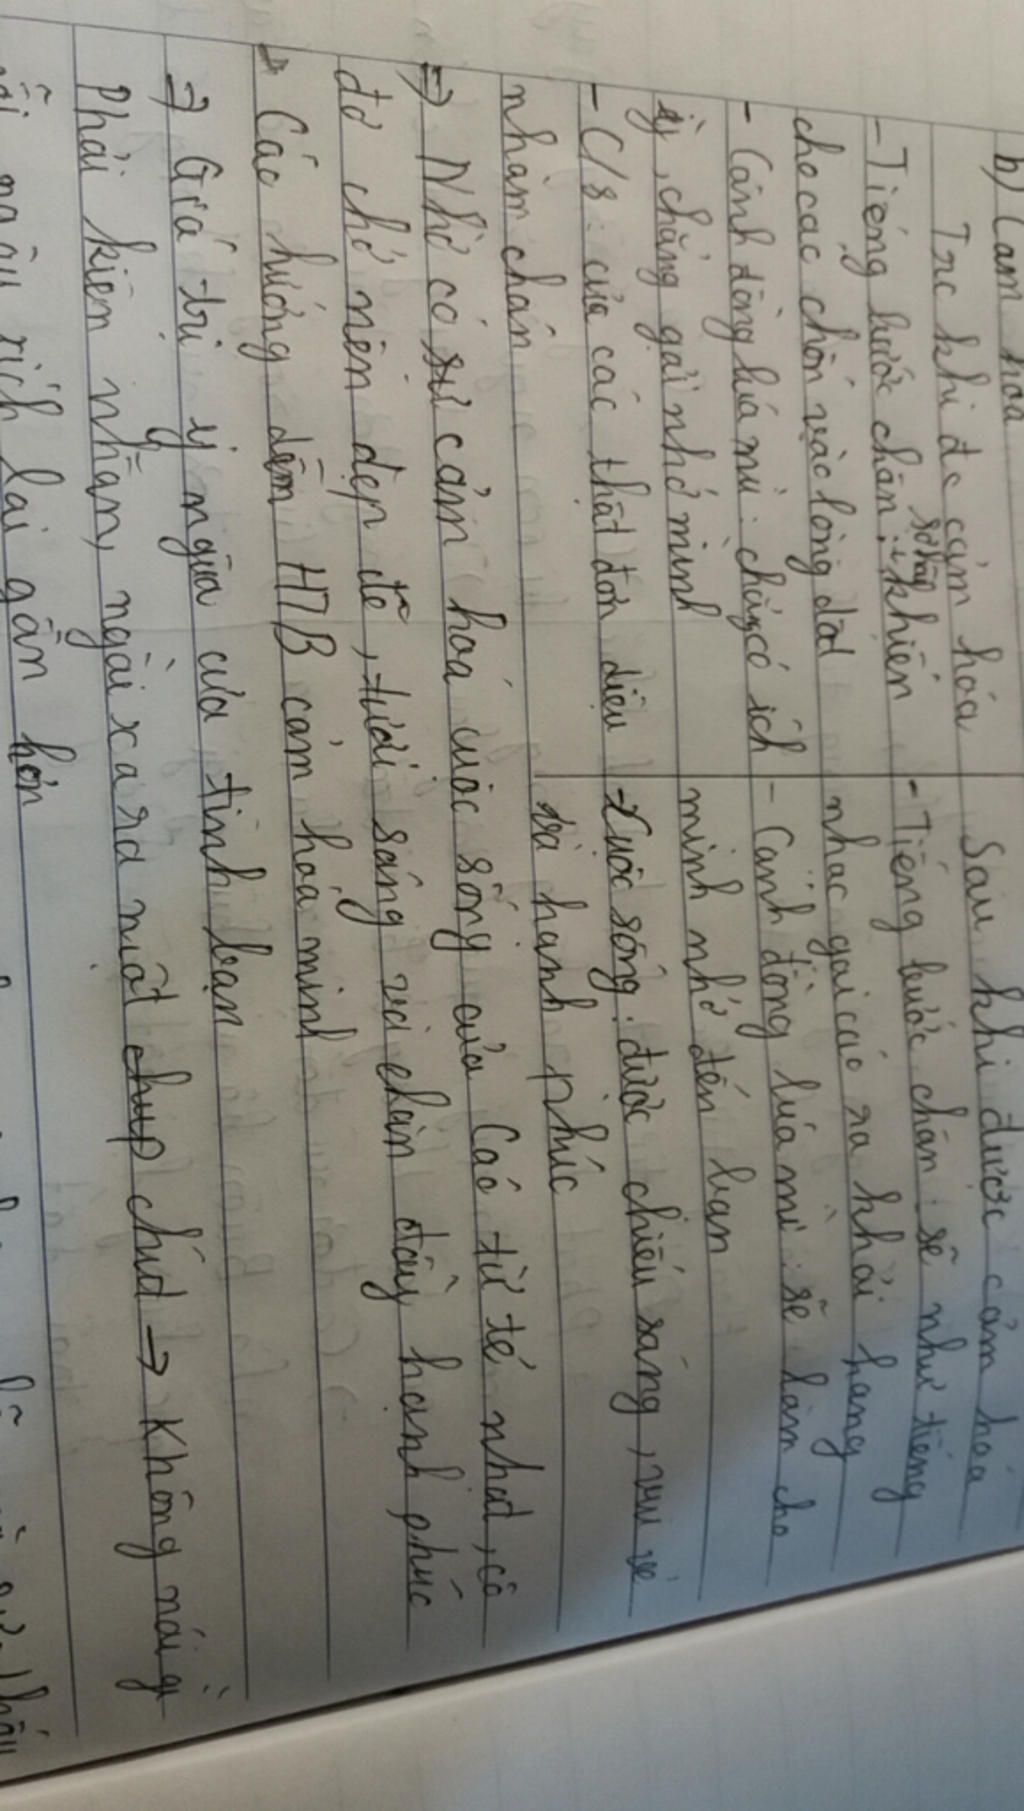 b) Cảm hóa
Trc khi đc cảm hóa
Sau khi được cảm hóa
- Tiếng bước chân: sợ hãi, khiến
cho cáo chốn vào lòng đất
- Cánh đồng lúa mì: chẳng có ích
gì, chẳng gợi nhớ mình
- C/s của cáo thật đơn điệu
nhàm chán
- Tiếng bước chân: sẽ như tiếng
nhạc gọi cáo ra khỏi hang
- Cánh đồng lúa mì: sẽ làm cho
mình nhớ đến bạn
- Cuộc sống: được chiếu sáng, vui vẻ
và hạnh phúc
=> Nhờ có sự cảm hoá cuộc sống của Cáo từ tẻ nhạt, cô
đơ chở nên đẹp đẽ, tươi sáng và chàn đầy hạnh phúc
Cáo hướng dẫn HTB cảm hoá mình
=> Giá trị ý nghĩa của tình bạn
Phải kiên nhẫn, ngồi xa ra một chup chút → Không nói gì
ngồi xích lại gần hơn